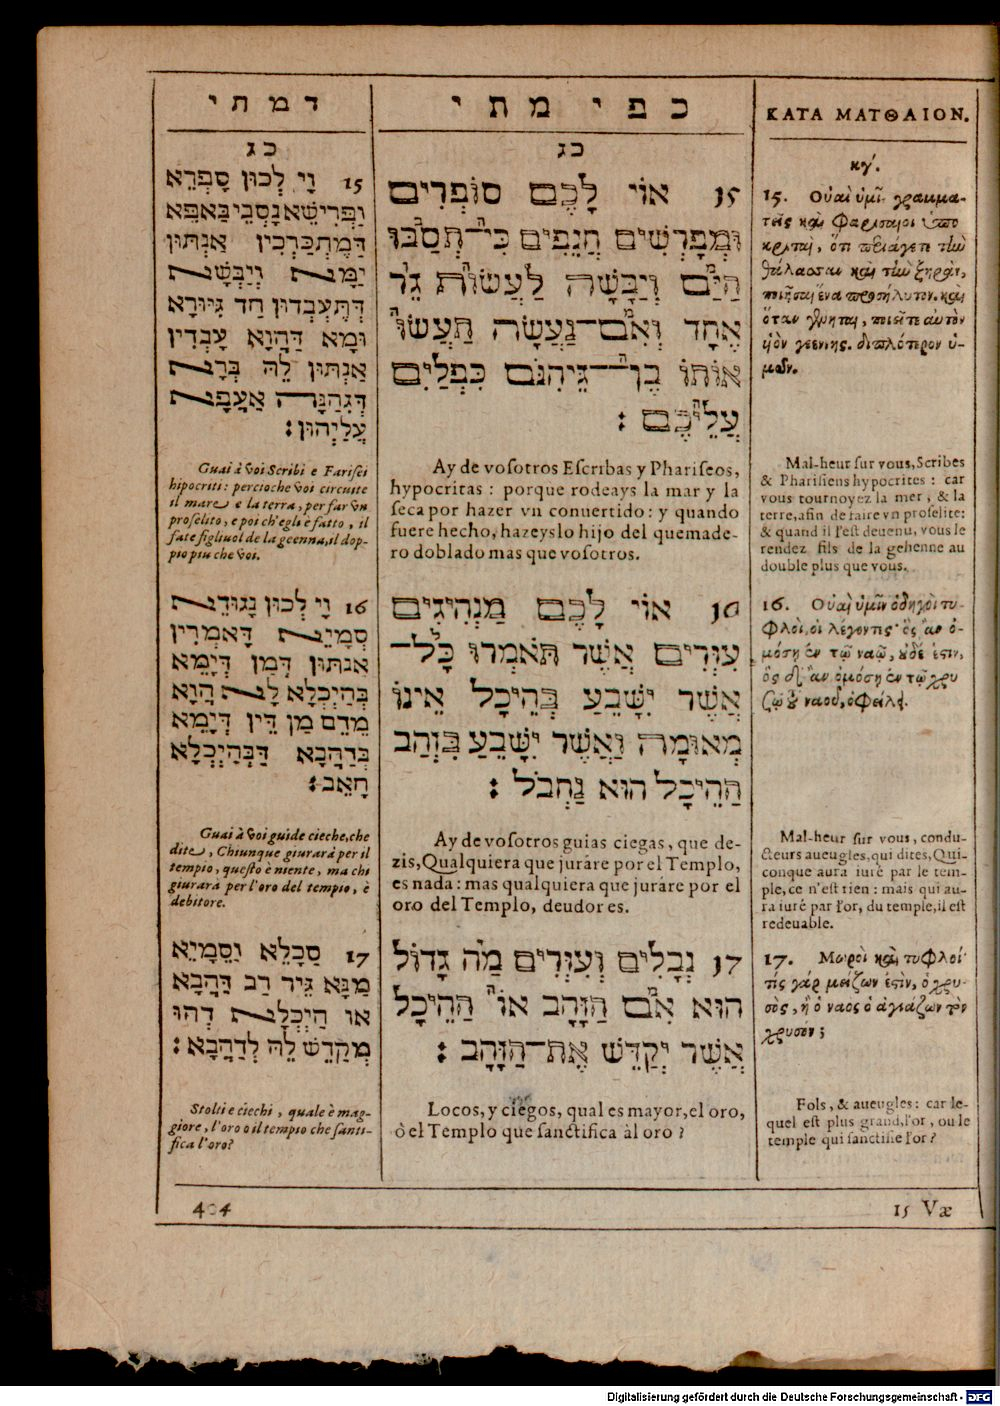 דמתי
כג
15 וָי לְכוּן סָפְרֵא
וַפְּרִישֵׁא נָסְבֵי בַּאפֵּא
דַּמֶתְכַּרְכִין אַנְתּוּן
יַמָּא וְיַבְּשָׁא
דְּתֶעְבְּדוּן חַד גִּיּוּרָא
וּמָא דַּהֲוָא עָבְדִין
אַנְתּוּן לֵהּ בְּרָהּ
דְּגִהַנָּא אַעֲפָא
עֲלַיְהוּן:
Guai à voi Scribi e Farisei
hipocriti: percioche voi circuite
il mare e la terra, per far vn
proselito, e poi ch'egli è fatto, il
fate figliuol de la geenna, il dop-
pio piu che voi.
16 וָי לְכוּן נָגוּדֵא
סְמַיָּא דָּאמְרִין
אַנְתּוּן דְּמַן דְּיָמֵא
בְּהַיְכְּלָא לָא הֲוָא
מֵדֵם מַן דֵּין דְּיָמֵא
בְּדַהֲבָא דַּבְּהַיְכְּלָא
חָאֵב:
Guai à voi guide cieche, che
dite, Chiunque giurarà per il
tempio, questo è niente, ma chi
giurarà per l'oro del tempio, è
debitore.
17 סַכְלֵא וַסְמַיֵא
מַנָּא גֵּיר רַב דַּהֲבָא
או הַיְכְּלָא דְהוּ
מְקַדֵשׁ לֵהּ לְדַהֲבָא:
Stolti e ciechi, quale è mag-
giore, l'oro o il tempio che santi-
fica l'oro?
404
כפי מתי
כג
15 אוֹי לָכֶם סוֹפְרִים
וּמְפָרְשִׁים חֲנֵפִים כִּי־תְסַבּוּ
הַיָּם וְיַבָּשָׁה לַעֲשׂוֹת גֵּר
אֶחָד וְאִם־נַעֲשָׂה תַּעֲשׂוּ
אוֹתוֹ בֶן־גֵּיהִנֹּם כִּפְלַיִם
עֲלֵיכֶם:
Ay de vosotros Escribas y Phariseos,
hypocritas: porque rodeays la mar y la
seca por hazer vn conuertido: y quando
fuere hecho, hazeyslo hijo del quemade-
ro doblado mas que vosotros.
16 אוֹי לָכֶם מַנְהִיגִים
עִוְרִים אֲשֶׁר תֹּאמְרוּ כָּל־
אֲשֶׁר יִשָּׁבֵעַ בְּהֵיכָל אֵינוֹ
מְאוּמָה וַאֲשֶׁר יִשָּׁבֵעַ בִּזְהַב
הַהֵיכָל הוּא נַחְבֹּל:
Ay de vosotros guias ciegas, que de-
zis, Qualquiera que juráre por el Templo,
es nada: mas qualquiera que juráre por el
oro del Templo, deudor es.
17 נְבָלִים וְעִוְרִים מַה גָדוֹל
הוּא אִם הַזָּהָב אוֹ הַהֵיכָל
אֲשֶׁר יְקַדֵּשׁ אֶת־הַזָּהָב:
Locos, y ciegos, qual es mayor, el oro,
ò el Templo que sanctifica àl oro?
ΚΑΤΑ ΜΑΤΘΑΙΟΝ.
κγ'.
15. Οὐαὶ ὑμῖν γραμμα-
τεῖς καὶ Φαρισαῖοι ὑπο
κριταὶ, ὅτι περιάγετε τὴν
θάλασσαν καὶ τὴν ξηρὰν,
ποιῆσαι ἕνα προσήλυτον. καὶ
ὅταν γένηται, ποιεῖτε αὐτὸν
υἱὸν γεέννης. διπλότερον ὑ-
μῶν.
Mal-heur sur vous, Scribes
& Pharisiens hypocrites: car
vous tournoyez la mer, & la
terre, afin de faire vn proselite:
& quand il l'est deuenu, vous le
rendez fils de la gehenne au
double plus que vous.
16. Οὐαὶ ὑμῖν ὁδηγοὶ τυ-
φλοὶ, οἱ λέγοντες· ὃς ἂν ὀ-
μόσῃ ἐν τῷ ναῷ, οὐδέ ἐστιν,
ὃς δ' ἂν ὀμόσῃ ἐν τῷ χρυ
σῷ τοῦ ναοῦ, ὀφείλει.
Mal-heur sur vous, condu-
cteurs aueugles, qui dites, Qui-
conque aura iuré par le tem-
ple, ce n'est rien: mais qui au-
ra iuré par l'or, du temple, il est
redeuable.
17. Μωροὶ καὶ τυφλοί·
τίς γάρ μείζων ἐστὶν, ὁ χρυ-
σὸς, ἢ ὁ ναὸς ὁ ἁγιάζων τὸν
χρυσόν;
Fols, & aueugles: car le-
quel est plus grand, l'or, ou le
temple qui sanctifie l'or?
15 Væ
Digitalisierung gefördert durch die Deutsche Forschungsgemeinschaft - DFG